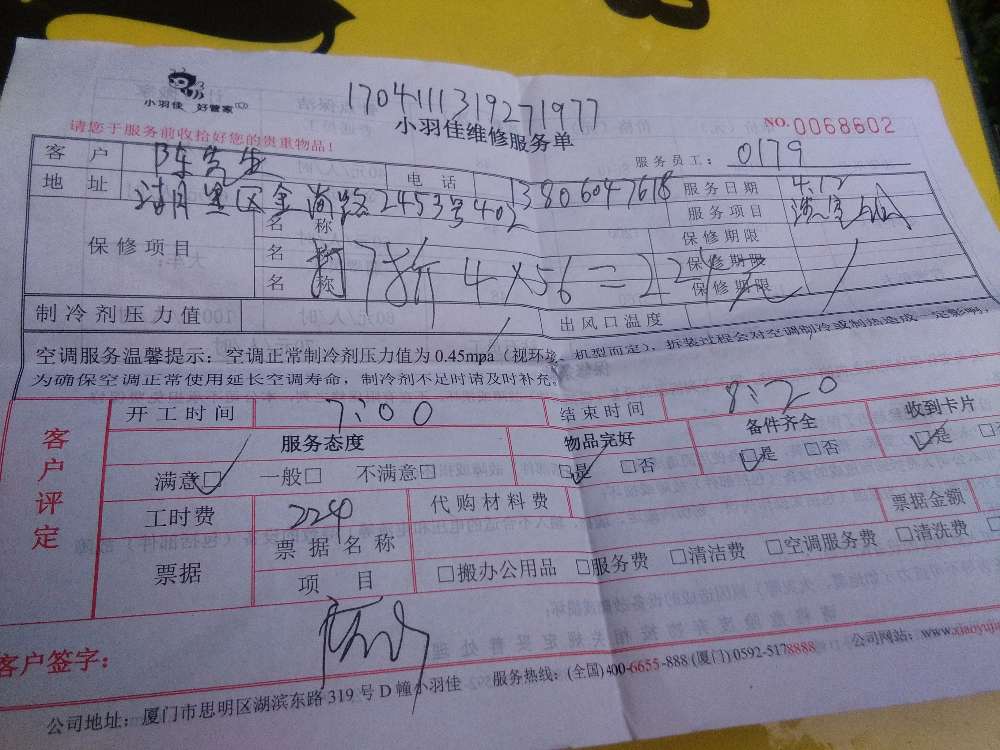 小羽佳 好管家
1704111319271977
小羽佳维修服务单
NO.0068602
请您于服务前收拾好您的贵重物品!
服务员工: 0179
客户 陈先生 电话 13806047618 服务日期 4.12
地址 2453号402 服务项目
保修项目 名称 保修期限
名称 7折 4×56=224 保修期限
名称 保修期限
制冷剂压力值 出风口温度
空调服务温馨提示: 空调正常制冷剂压力值为0.45mpa (视环境、机型而定), 拆装过程会对空调制冷或制热造成一定影响,
为确保空调正常使用延长空调寿命, 制冷剂不足时请及时补充。
客户评定
开工时间 7:00 结束时间 8:20
服务态度 物品完好 备件齐全 收到卡片
满意□ 一般□ 不满意□ □是 □否 □是 □否 □是 □
工时费 224 代购材料费
票据 票据名称 票据金额
项目 □搬办公用品 □服务费 □清洁费 □空调服务费 □清洗费
客户签字:
公司地址: 厦门市思明区湖滨东路319号D幢小羽佳 服务热线: (全国) 400-6655-888 (厦门) 0592-5178888 公司网站: www.xiaoyujia